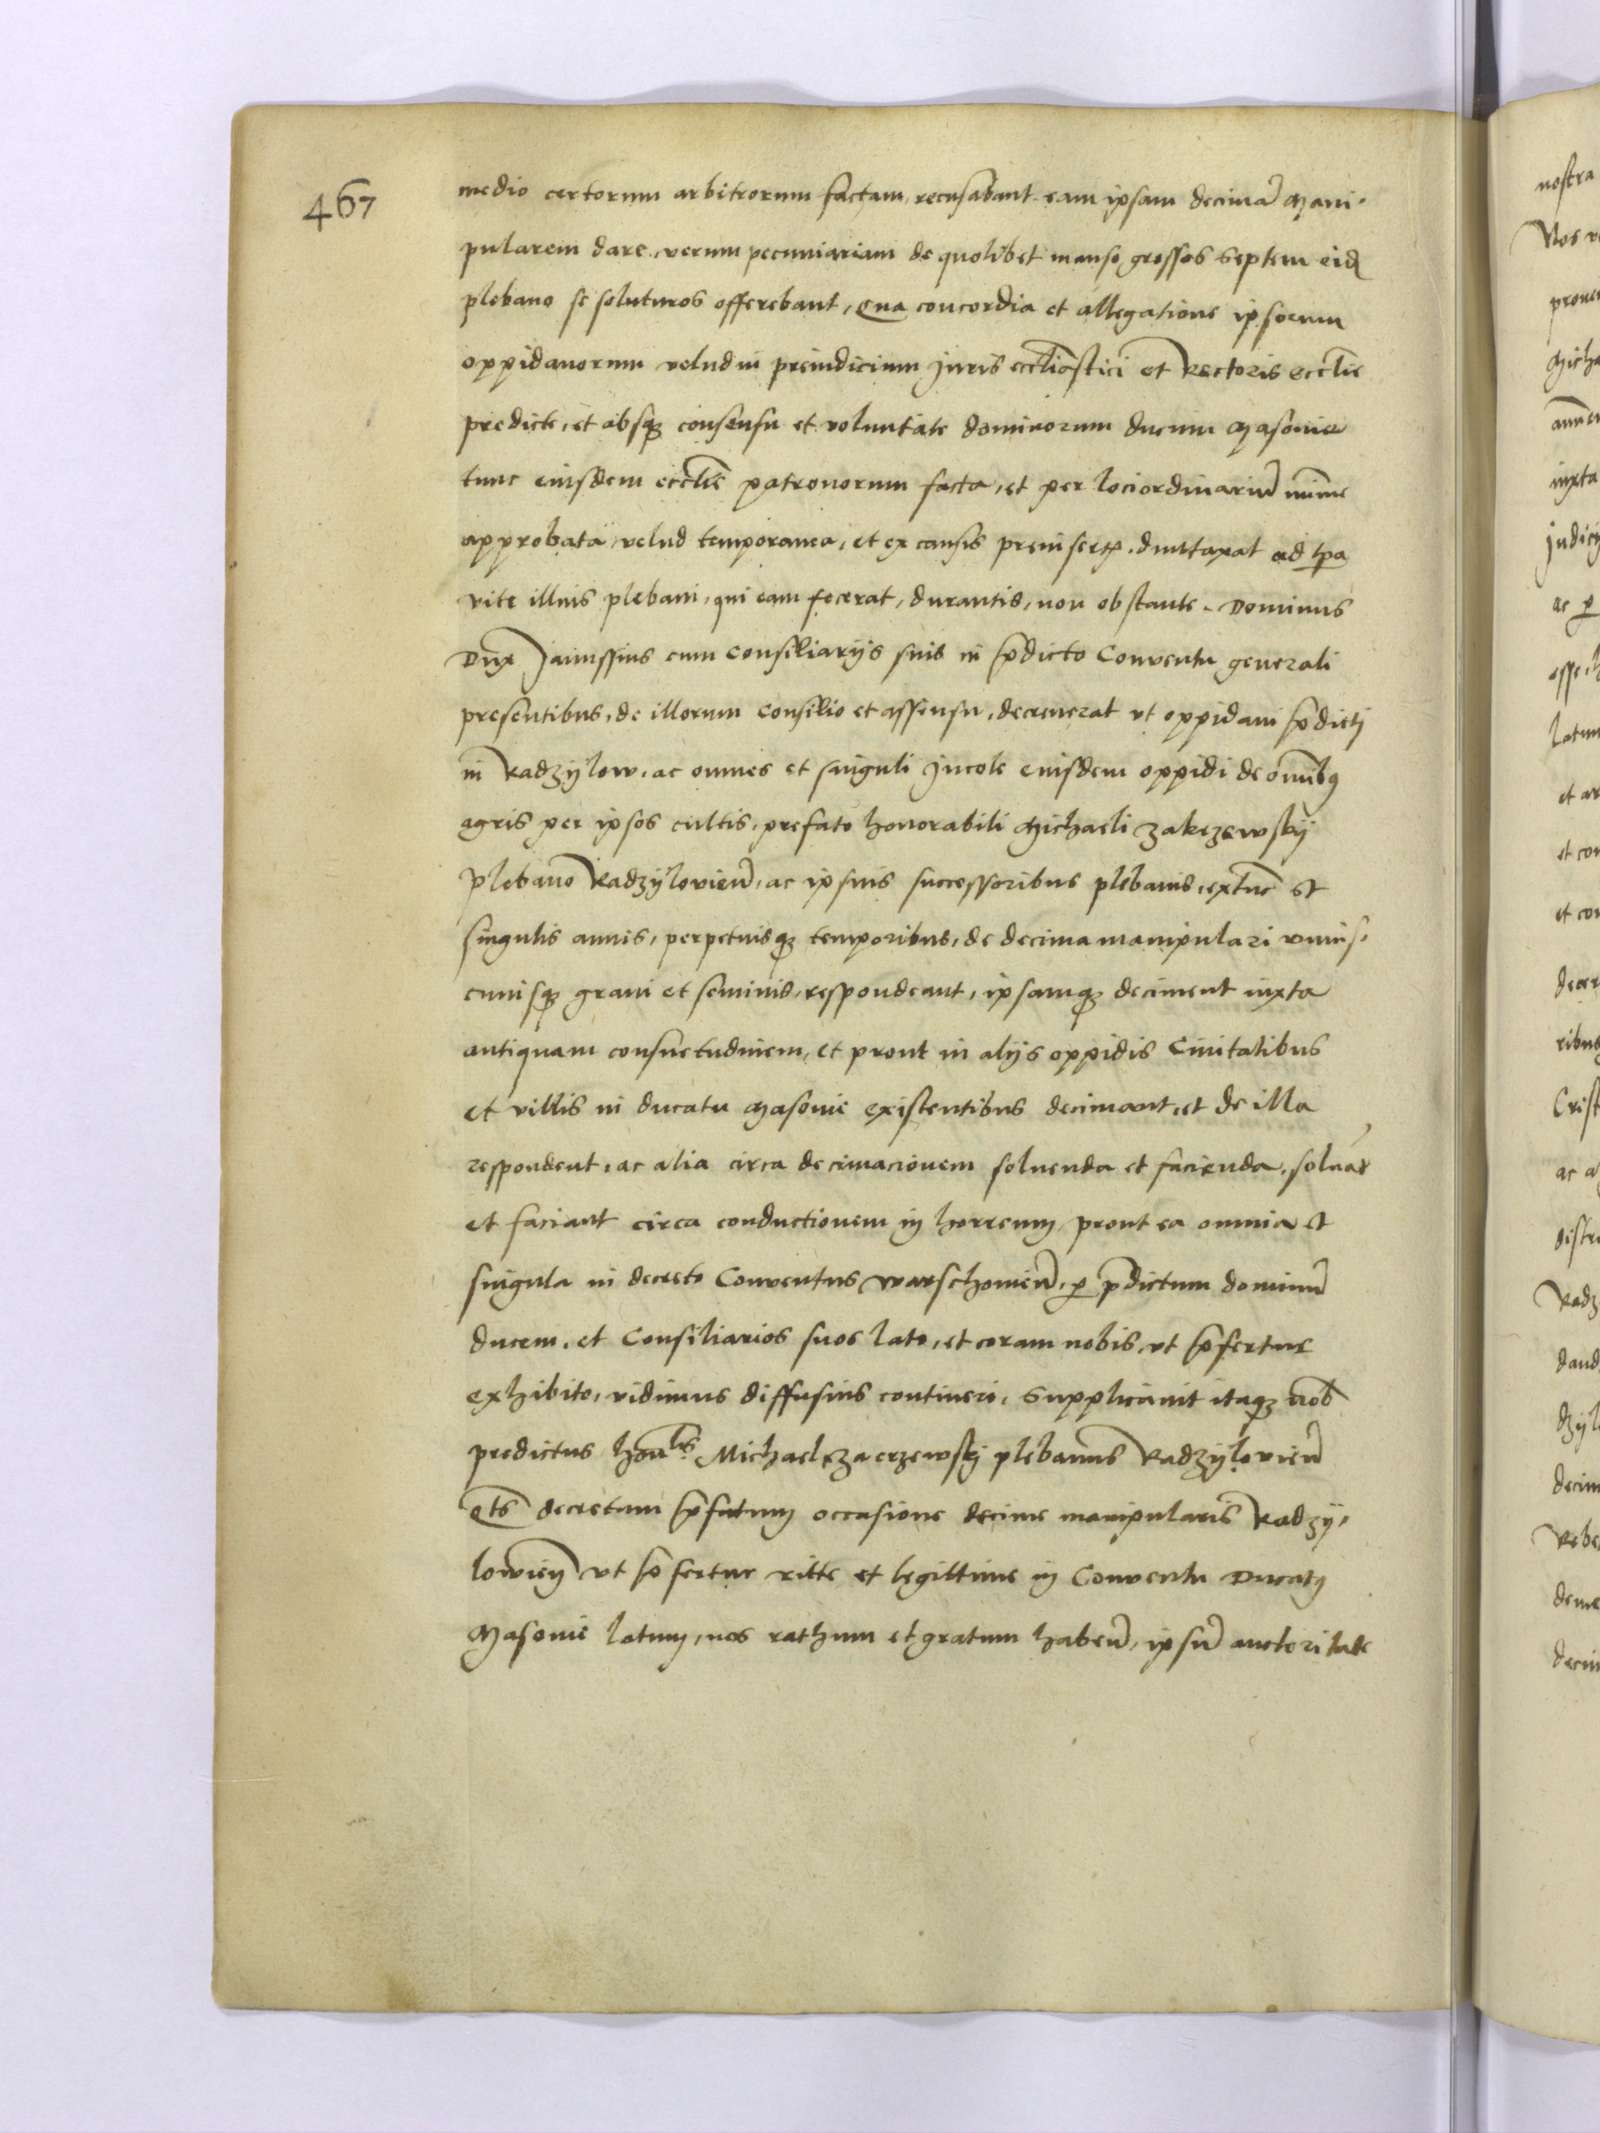 467
medio certorum arbitrorum factam, recusabant eam ipsam decimā Mani-
pularem dare, verum pecuniariam de quolibet manso grossos septem eidē
plebano se soluturos offerebant, Qua concordia et allegatione ipsorum
oppidanorum velud in preiudicium Juris eccliastici et Rectoris ecclie
predicte, et absqȝ consensu et voluntate dominorum ducum Masouie
tunc eiusdem ecclie patronorum facta, et per loci ordinariū minime
approbata, velud temporanea, et ex causis preinsertis duntaxat ad tpa
vite illius plebani, qui eam fecerat, durantis, non obstante. Dominus
Dux Janussius cum Consiliarijs suis in p̄dicto Conventu generali
presentibus, de illorum consilio et assensu, decreuerat vt oppidani p̄dicti
in Radzijlow, ac omnes et singuli Jncole eiusdem oppidi de omnibꝯ
agris per ipsos cultis, prefato honorabili Michaeli zakrzewskij
plebano Radzijlovieñ, ac ipsius successoribus plebanis, extunc et
singulis annis, perpetuisqȝ temporibus, de decima manipulari vnius-
cuiusqȝ grani et seminis, respondeant, ipsamqȝ deciment iuxta
antiquam consuetudinem, et prout in alijs oppidis Ciuitatibus
et villis in ducatu Masouie existentibus decimant, et de illa
respondent, ac alia circa decimacionem soluenda et facienda, soluāt
et faciant circa conductionem in horreum, prout ea omnia et
singula in decreto Conventus warschouieñ, p̱ p̄dictum dominū
ducem, et Consiliarios suos lato, et coram nobis, vt p̄fertur
exhibito, vidimus diffusius contineri, Supplicauit itaqȝ nob
predictus honlis Michael zacrzewskj plebanus Radzijlovieñ
qts decretum p̄fatum occasione decime manipularis Radzij-
lowieñ vt p̄fertur ritte et legittime in Conventu Ducatꝯ
Masouie latum, nos rathum et gratum habeñ, ipsū auctoritate